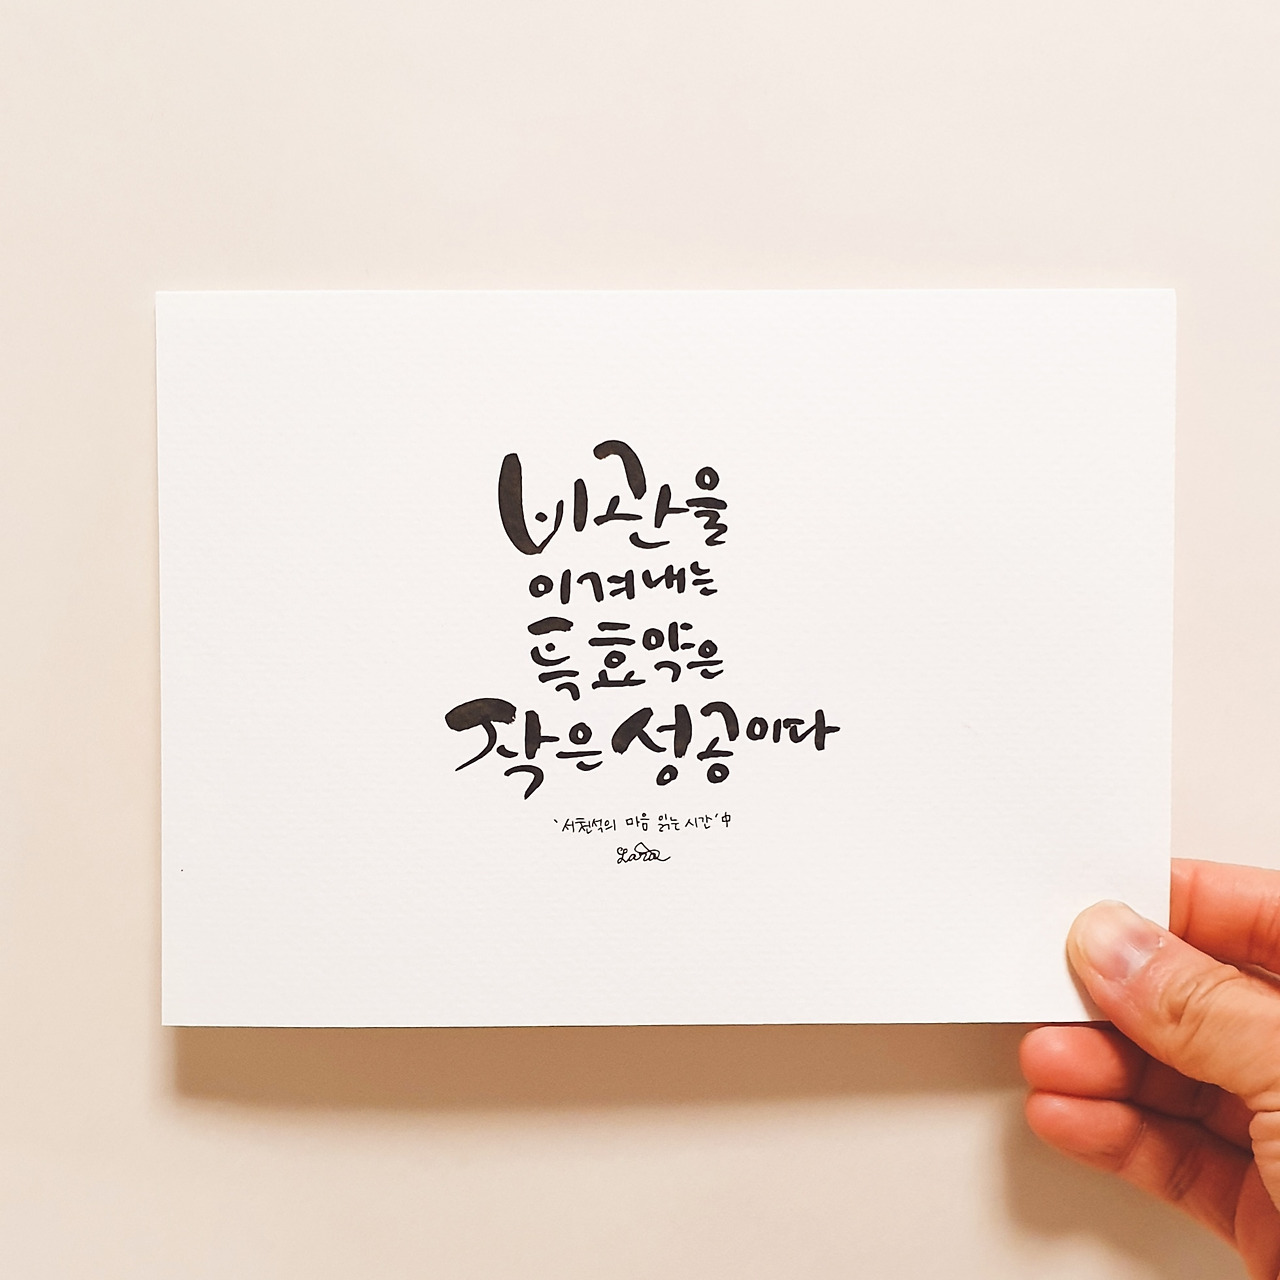 비관을
이겨내는
특효약은
작은 성공이다
'서천석의 마음 읽는 시간' 中
Lara